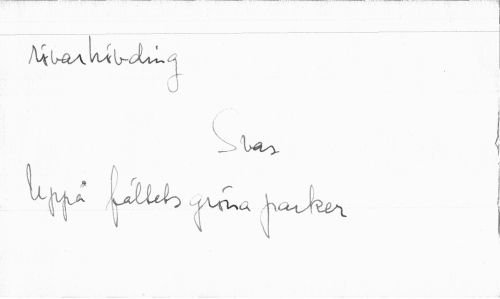 rövarhövding
Svar
Uppå fältets gröna parker